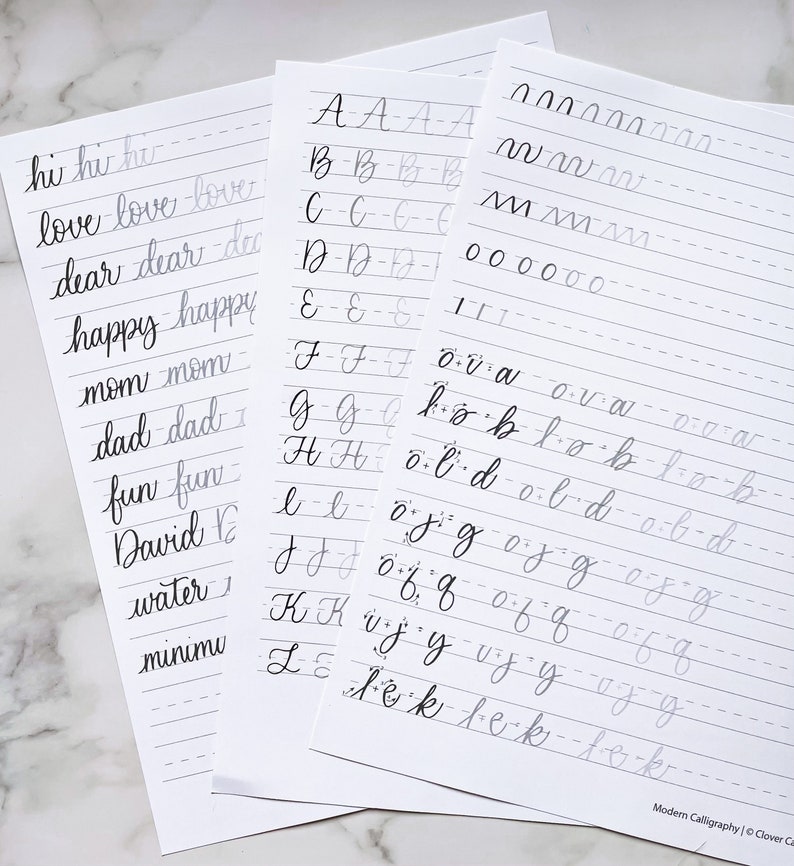 hi hi hi
love love love
dear dear
happy happy
mom mom
dad dad
fun fun
David
water
A A A A
B B B B
C C C C
D D D
E E E
F F F
G G G
H H H
I I
J J J
K K
L L
o + v = a o + v = a o + v = a
l + o = b l + o = b l + o = b
o + l = d o + l = d o + l = d
o + j = g o + j = g o + j = g
v + j = y v + j = y v + j = y
Modern Calligraphy | © Clover